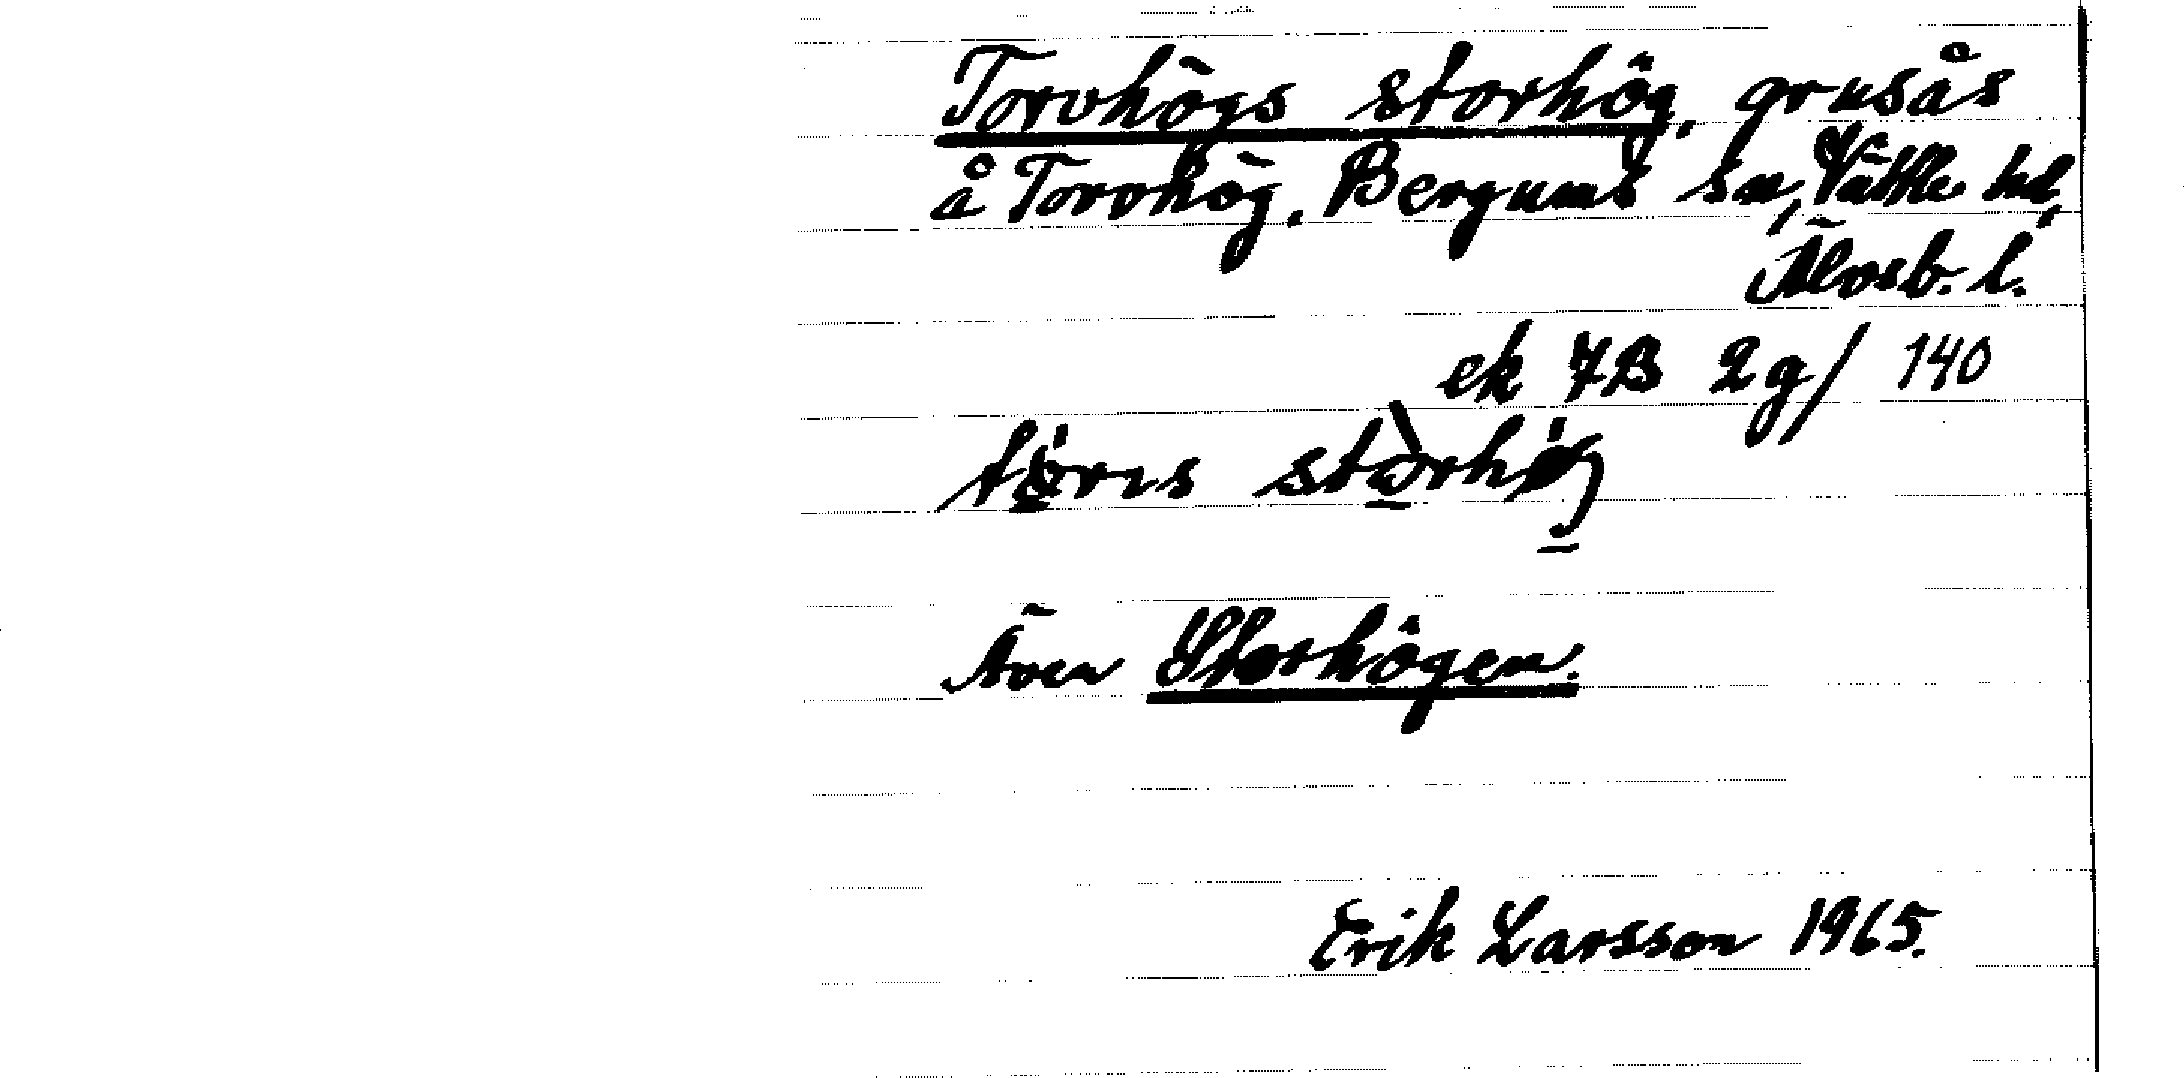 Torvhögs storhög, grusås
å Torvhög, Bergums sn, Vättle hd,
Älvsb. l.
ek 7B 2g/140
Även Storhögen.
Erik Larsson 1965.